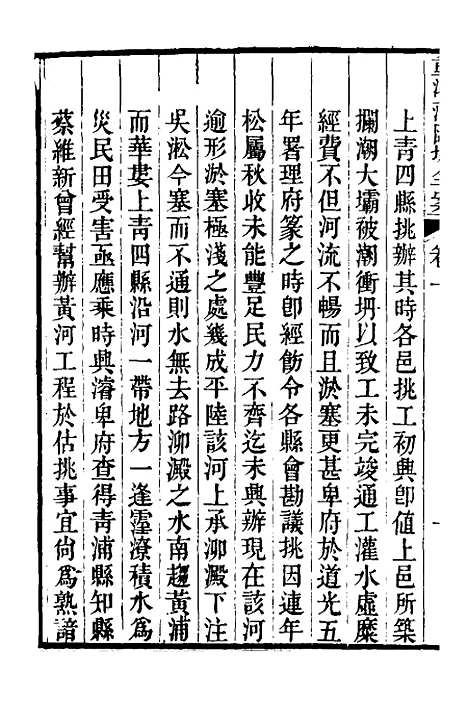 上靑四縣挑辦其時各邑挑工初興卽値上邑所築
攔潮大壩被潮衝坍以致工未完竣通工灌水虛糜
經費不但河流不暢而且淤塞更甚卑府於道光五
年署理府篆之時卽經飭令各縣會勘議挑因連年
松屬秋收未能豐足民力不齊迄未興辦現在該河
逾形淤塞極淺之處幾成平陸該河上承泖澱下注
吳淞今塞而不通則水無去路泖澱之水南趨黃浦
而華婁上靑四縣沿河一帶地方一逢霪潦積水爲
災民田受害亟應乘時興濬卑府查得靑浦縣知縣
蔡維新曾經幫辦黃河工程於估挑事宜尙爲熟諳